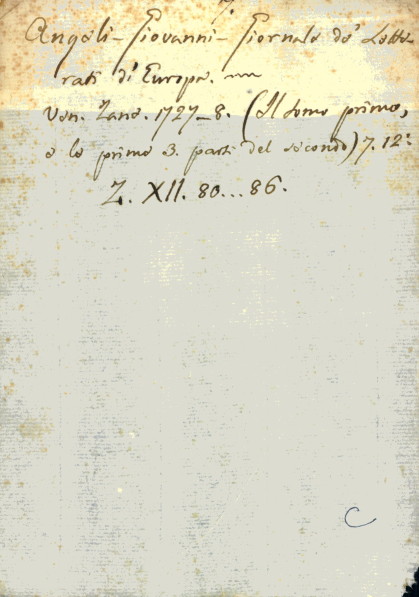 7.
Angeli - Giovanni - Giornale de' Lette-
rati di Europa.
Ven. Zane. 1727_8. (Il tomo primo,
e le prime 3. parti del secondo) 7. 12°
Z. XII. 80... 86.
C